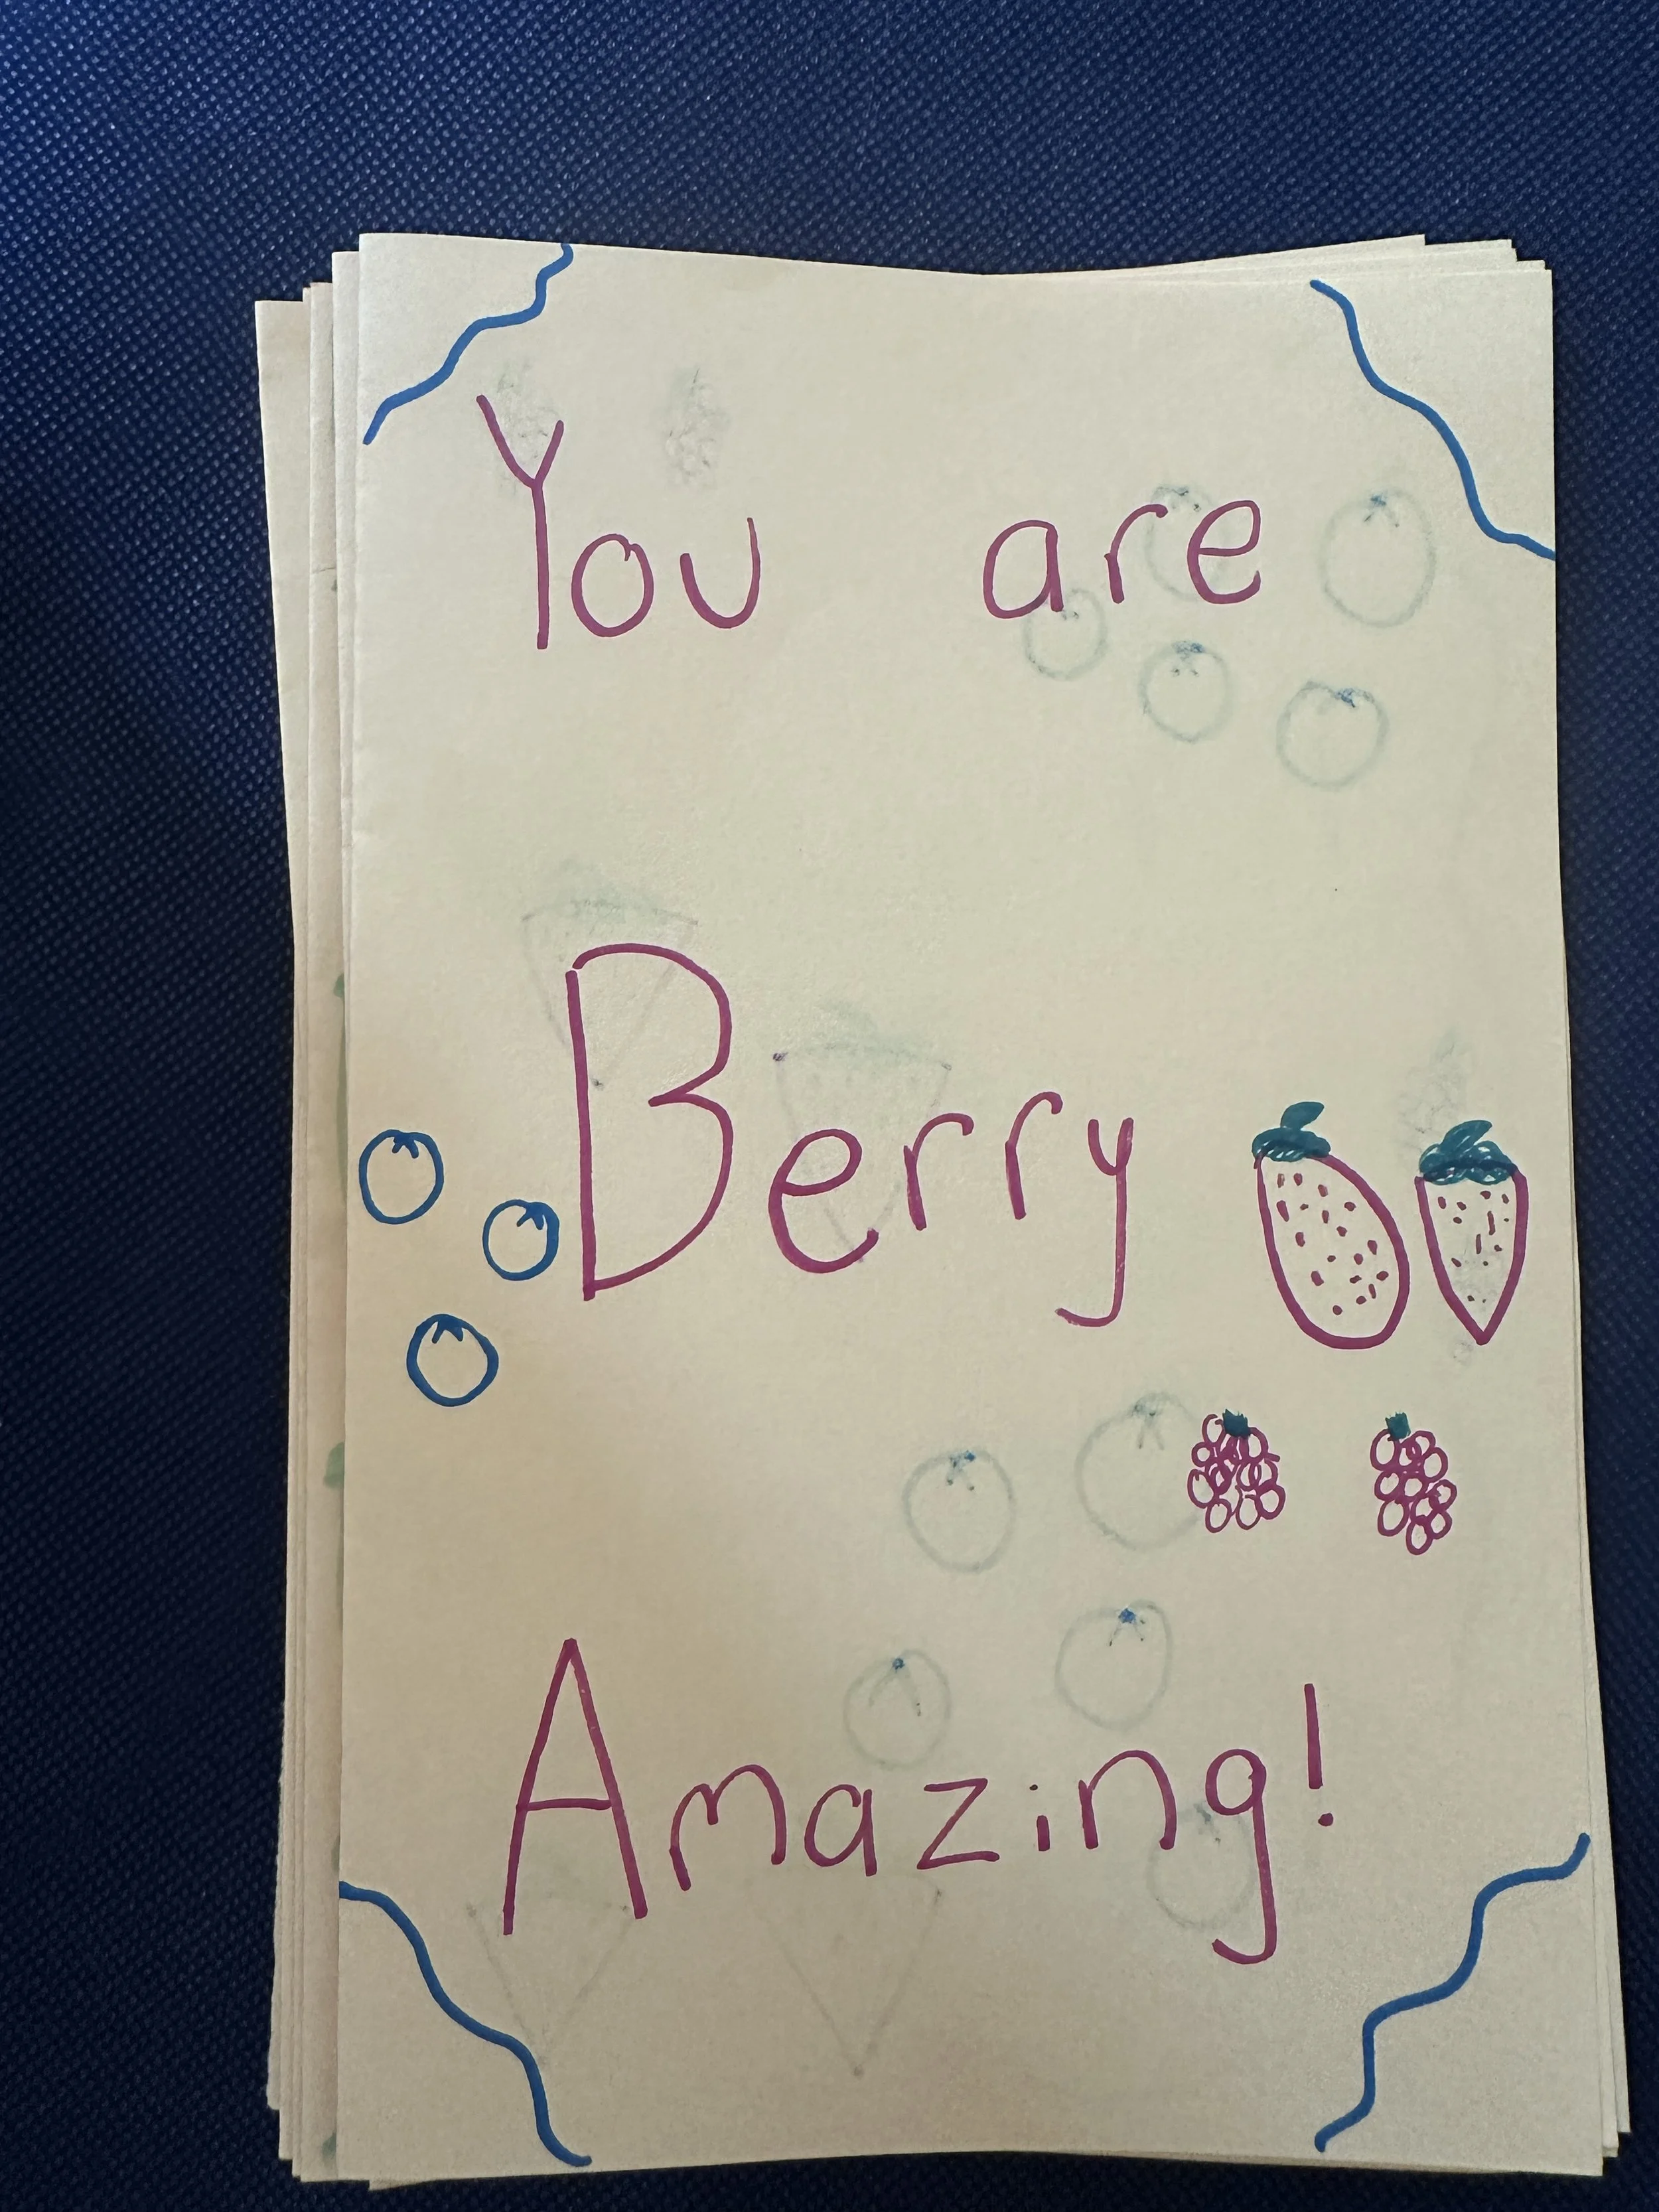 You are
Berry
Amazing!